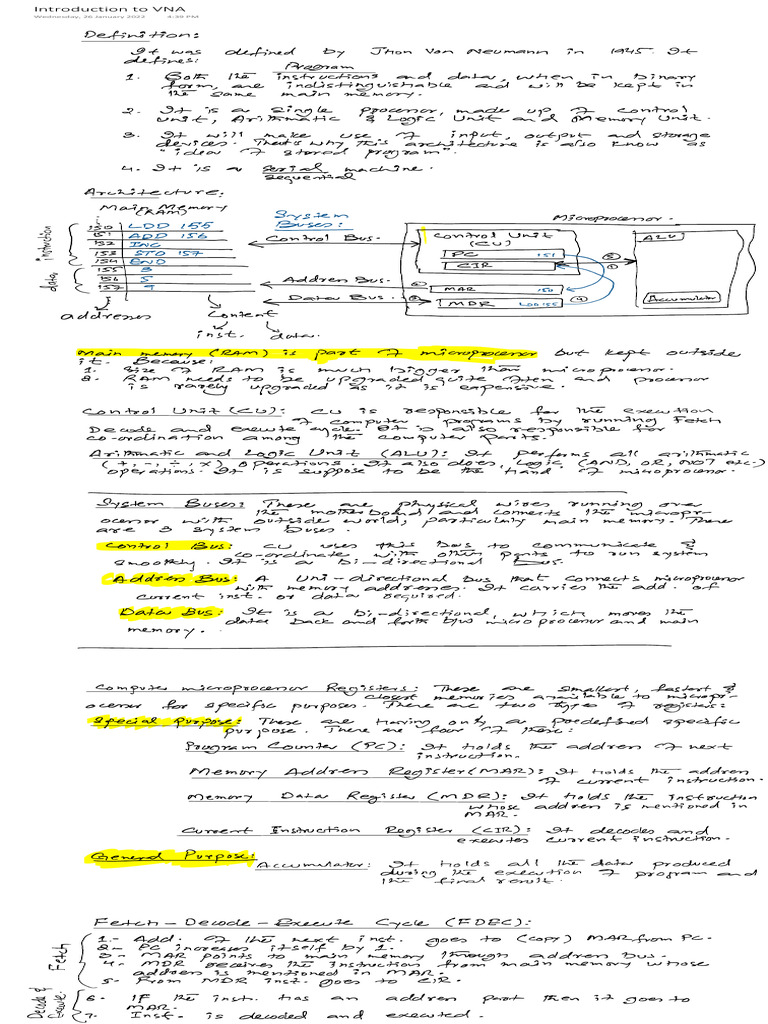 Introduction to VNA
Wednesday, 26 January 2022 4:39 PM
Definition:
It was defined by Jhon Von Neumann in 1945. It
defines:
Program
1. Both the instructions and data, when in binary
form, are indistinguishable and will be kept in
the same main memory.
2. It is a single processor, made up of control
unit, Arithmatic & Logic Unit and Memory Unit.
3. It will make use of input, output and storage
devices. That's why this architecture is also know as
"idea of stored program".
4. It is a serial machine.
sequential
Architecture:
Main Memory
(RAM)
System
Buses:
Microprocessor.
instruction
data
150 LDD 155
151 ADD 156
152 INC
153 STO 157
154 END
155 3
156 5
157 9
addresses
Content
inst. data.
Control Bus.
Address Bus.
Data Bus.
Control Unit
(CU)
PC 151
CIR
MAR 150
MDR LDD 155
ALU
Accumulator
Main memory (RAM) is part of microprocessor but kept outside
it. Because:
1. Size of RAM is much bigger than microprocessor.
2. RAM needs to be upgraded quite often and processor
is rarely upgraded as it is expensive.
Control Unit (CU): CU is responsible for the execution
of computer programs by running Fetch
Decode and execute cycle. It is also responsible for
co-ordination among the computer parts.
Arithmatic and Logic Unit (ALU): It performs all arithmatic
(+, -, ÷, ×) operations. It also does, Logic (AND, OR, NOT etc.)
operations. It is suppose to be the hand of microprocessor.
System Buses: These are physical wires running over
the motherboard and connects the micropr-
ocessor with outside world, particularly main memory. There
are 3 system buses.
Control Bus: CU uses this bus to communicate &
co-ordinate with other parts to run system
smoothly. It is a bi-directional bus.
Address Bus: A Uni-directional bus that connects microprocessor
with memory addresses. It carries the add. of
current inst. or data required.
Data Bus: It is a bi-directional, which moves the
data back and forth b/w microprocessor and main
memory.
Computer microprocessor Registers: These are smallest, fastest &
closest memories available to micropr-
ocessor for specific purposes. There are two types of registers:
Special Purpose: These are having only a predefined specific
purpose. There are four of these:
Program Counter (PC): It holds the address of next
instruction.
Memory Address Register (MAR): It holds the address
of current instruction.
Memory Data Register (MDR): It holds the instruction
whose address is mentioned in
MAR.
Current Instruction Register (CIR): It decodes and
executes current instruction.
General Purpose:
Accumulator: It holds all the data produced
during the execution of program and
the final result.
Fetch-Decode-Execute Cycle (FDEC):
Fetch
1.- Add. of the next inst. goes to (copy) MAR from PC.
2.- PC increases itself by 1.
3.- MAR points to main memory through address bus.
4.- MDR receives the instruction from main memory whose
address is mentioned in MAR.
5.- From MDR inst. goes to CIR.
Decode &
Execute
6.- IF the inst. has an address part then it goes to
MAR.
7.- Inst. is decoded and executed.